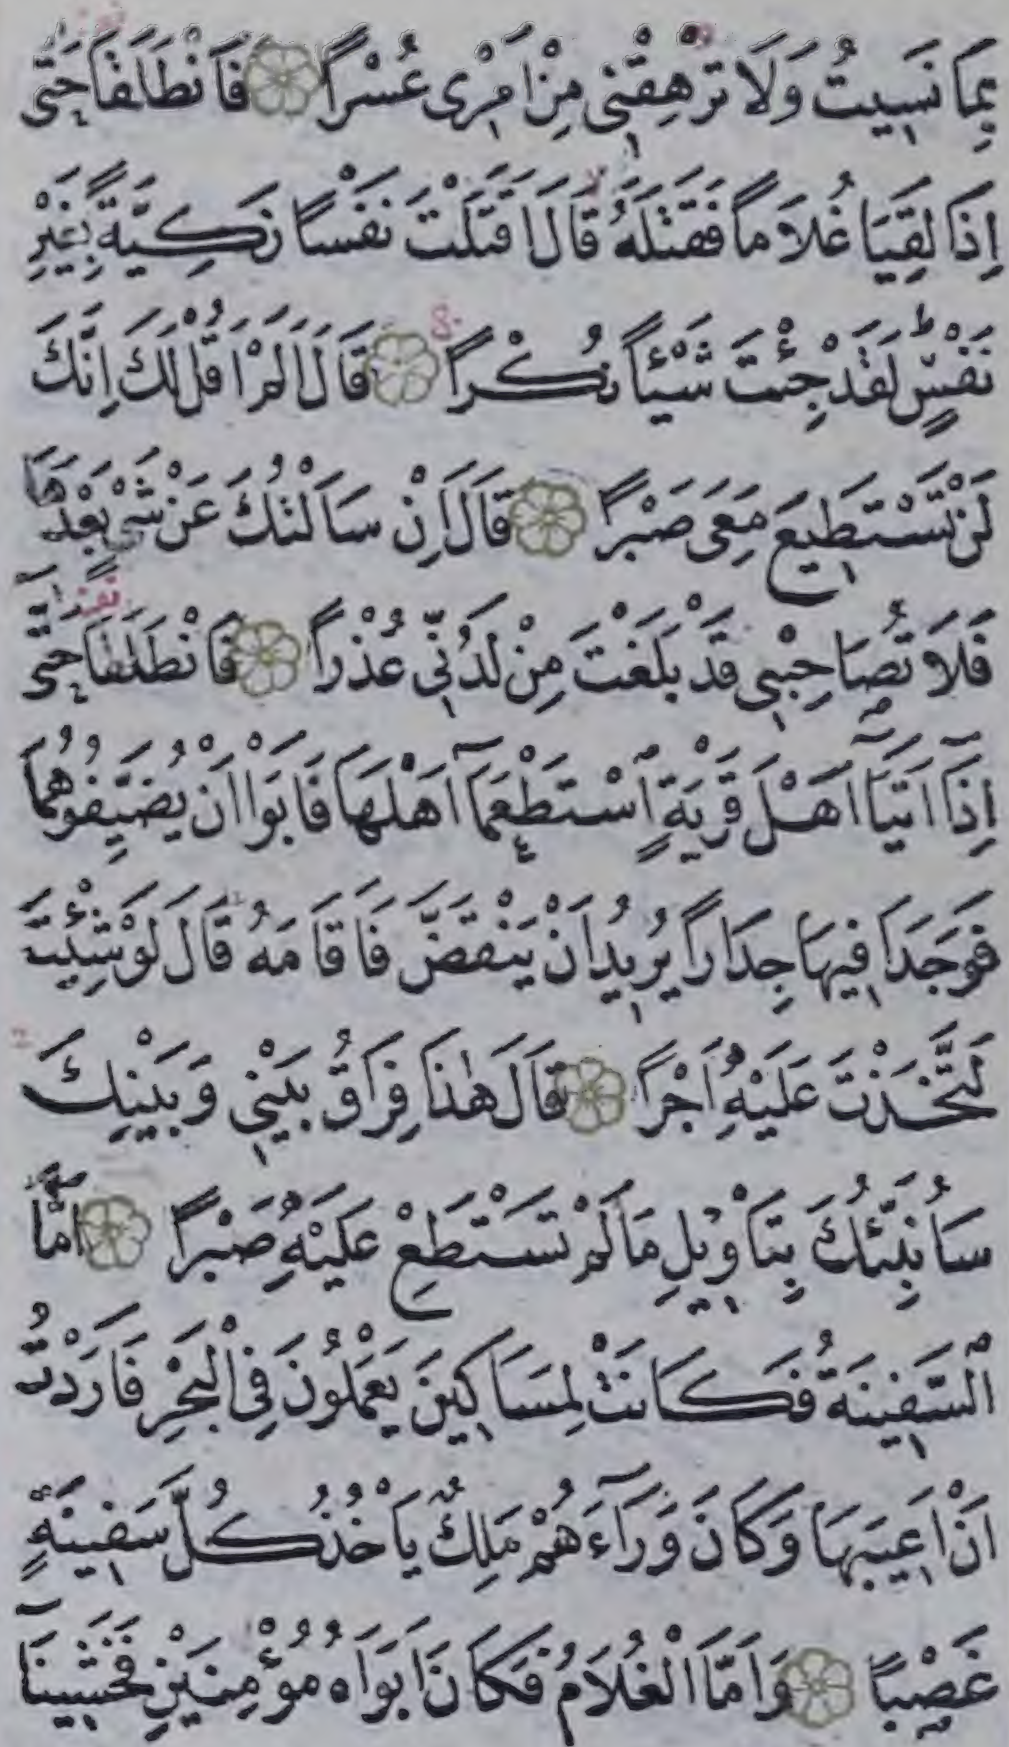 بِمَا نَسِيتُ وَلَا تُرْهِقْنِى مِنْ اَمْرِى عُسْرًا فَانْطَلَقَا حَتّٰى
اِذَا لَقِيَا غُلَامًا فَقَتَلَهُ قَالَ اَقَتَلْتَ نَفْسًا زَكِيَّةً بِغَيْرِ
نَفْسٍ لَقَدْ جِئْتَ شَيْئًا نُكْرًا قَالَ اَلَمْ اَقُلْ لَكَ اِنَّكَ
لَنْ تَسْتَطِيعَ مَعِىَ صَبْرًا قَالَ اِنْ سَاَلْتُكَ عَنْ شَىْءٍ بَعْدَهَا
فَلَا تُصَاحِبْنِى قَدْ بَلَغْتَ مِنْ لَدُنِّى عُذْرًا فَانْطَلَقَا حَتّٰى
اِذَا اَتَيَآ اَهْلَ قَرْيَةٍ اسْتَطْعَمَآ اَهْلَهَا فَاَبَوْا اَنْ يُضَيِّفُوهُمَا
فَوَجَدَا فِيهَا جِدَارًا يُرِيدُ اَنْ يَنْقَضَّ فَاَقَامَهُ قَالَ لَوْ شِئْتَ
لَتَّخَذْتَ عَلَيْهِ اَجْرًا قَالَ هٰذَا فِرَاقُ بَيْنِى وَبَيْنِكَ
سَاُنَبِّئُكَ بِتَاْوِيلِ مَا لَمْ تَسْتَطِعْ عَلَيْهِ صَبْرًا اَمَّا
السَّفِينَةُ فَكَانَتْ لِمَسَاكِينَ يَعْمَلُونَ فِى الْبَحْرِ فَاَرَدْتُ
اَنْ اَعِيبَهَا وَكَانَ وَرَآءَهُمْ مَلِكٌ يَاْخُذُ كُلَّ سَفِينَةٍ
غَصْبًا وَاَمَّا الْغُلَامُ فَكَانَ اَبَوَاهُ مُؤْمِنَيْنِ فَخَشِينَآ